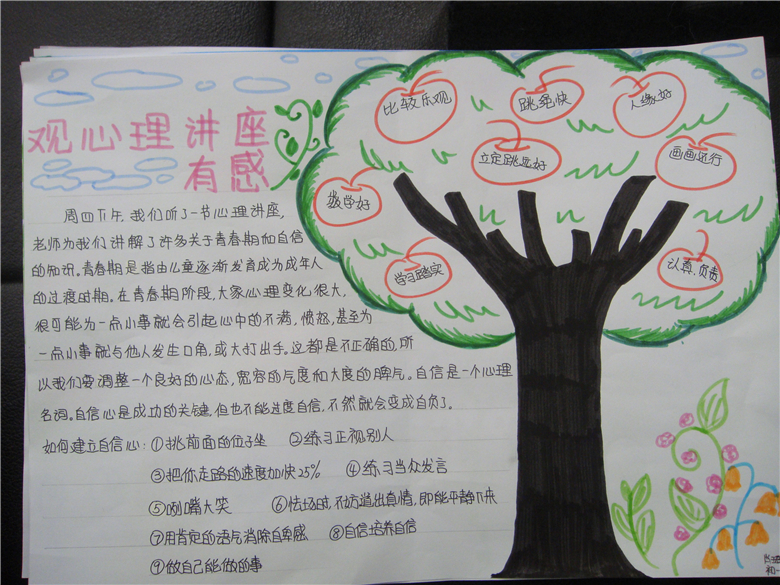 观心理讲座
有感
周四下午,我们听了一节心理讲座,
老师为我们讲解了许多关于青春期和自信
的知识。青春期是指由儿童逐渐发育成为成年人
的过渡时期。在青春期阶段,大家心理变化很大,
很可能为一点小事就会引起心中的不满,愤怒,甚至为
一点小事就与他人发生口角,或大打出手。这都是不正确的,所
以我们要调整一个良好的心态,宽容的气度和大度的脾气。自信是一个心理
名词。自信心是成功的关键,但也不能过度自信,不然就会变成自负了。
如何建立自信心:①挑前面的位子坐 ②练习正视别人
③把你走路的速度加快25% ④练习当众发言
⑤咧嘴大笑 ⑥怯场时,不妨道出真情,即能平静下来
⑦用肯定的语气消除自卑感 ⑧自信培养自信
⑨做自己能做的事
比较乐观
跳绳快
人缘好
立定跳远好
画画还行
数学好
学习踏实
认真、负责